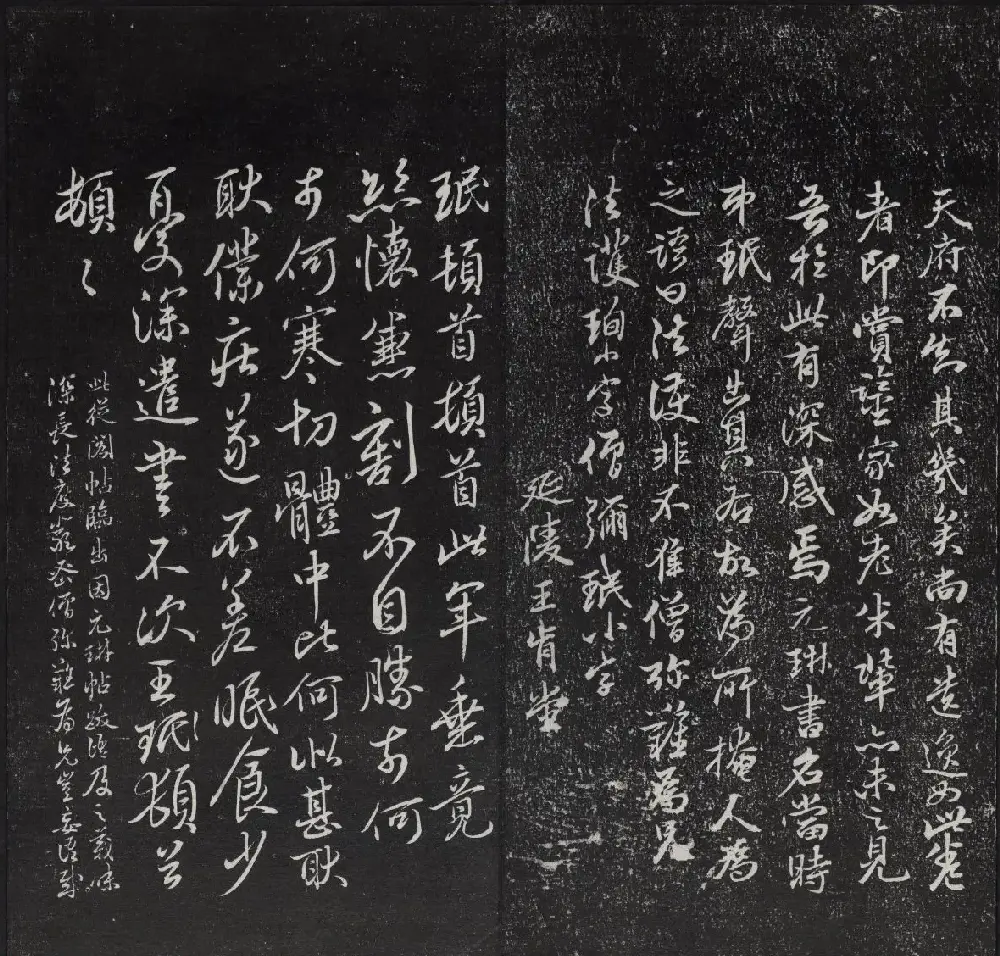 天府不知其幾矣尚有遺逸如此卷
者即賞鑒家如老米輩亦未之見
吾於此有深感焉元琳書名當時
弟珉聲出其右故為所掩人為
之語曰法護非不佳僧彌難為兄
法護珣小字僧彌珉小字
延陵王肯堂
珉頓首頓首此年垂竟
悲懷兼割不自勝奈何
奈何寒切體中比何似甚耿
耿僕疾遂不差眠食少
百憂深遣書不次王珉頓首
頓〻
此從閣帖臨出因元琳帖跋語及之
深長法度 僧彌難為兄